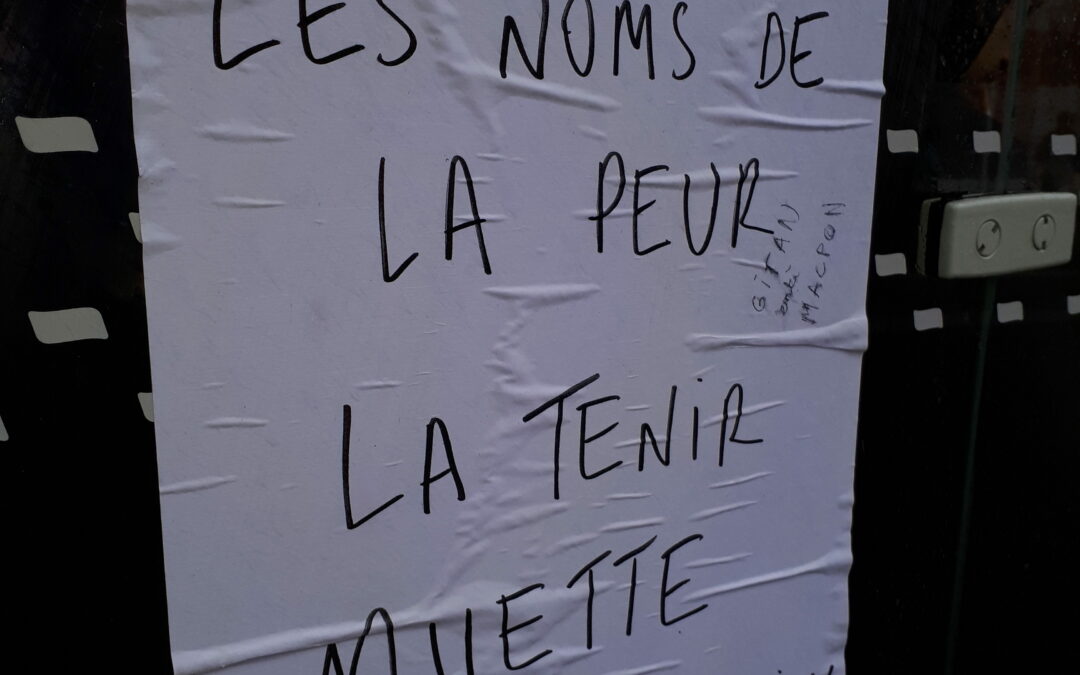 LES NOMS DE
LA PEUR
GiTAN
MACRON
LA TENiR
MUETTE